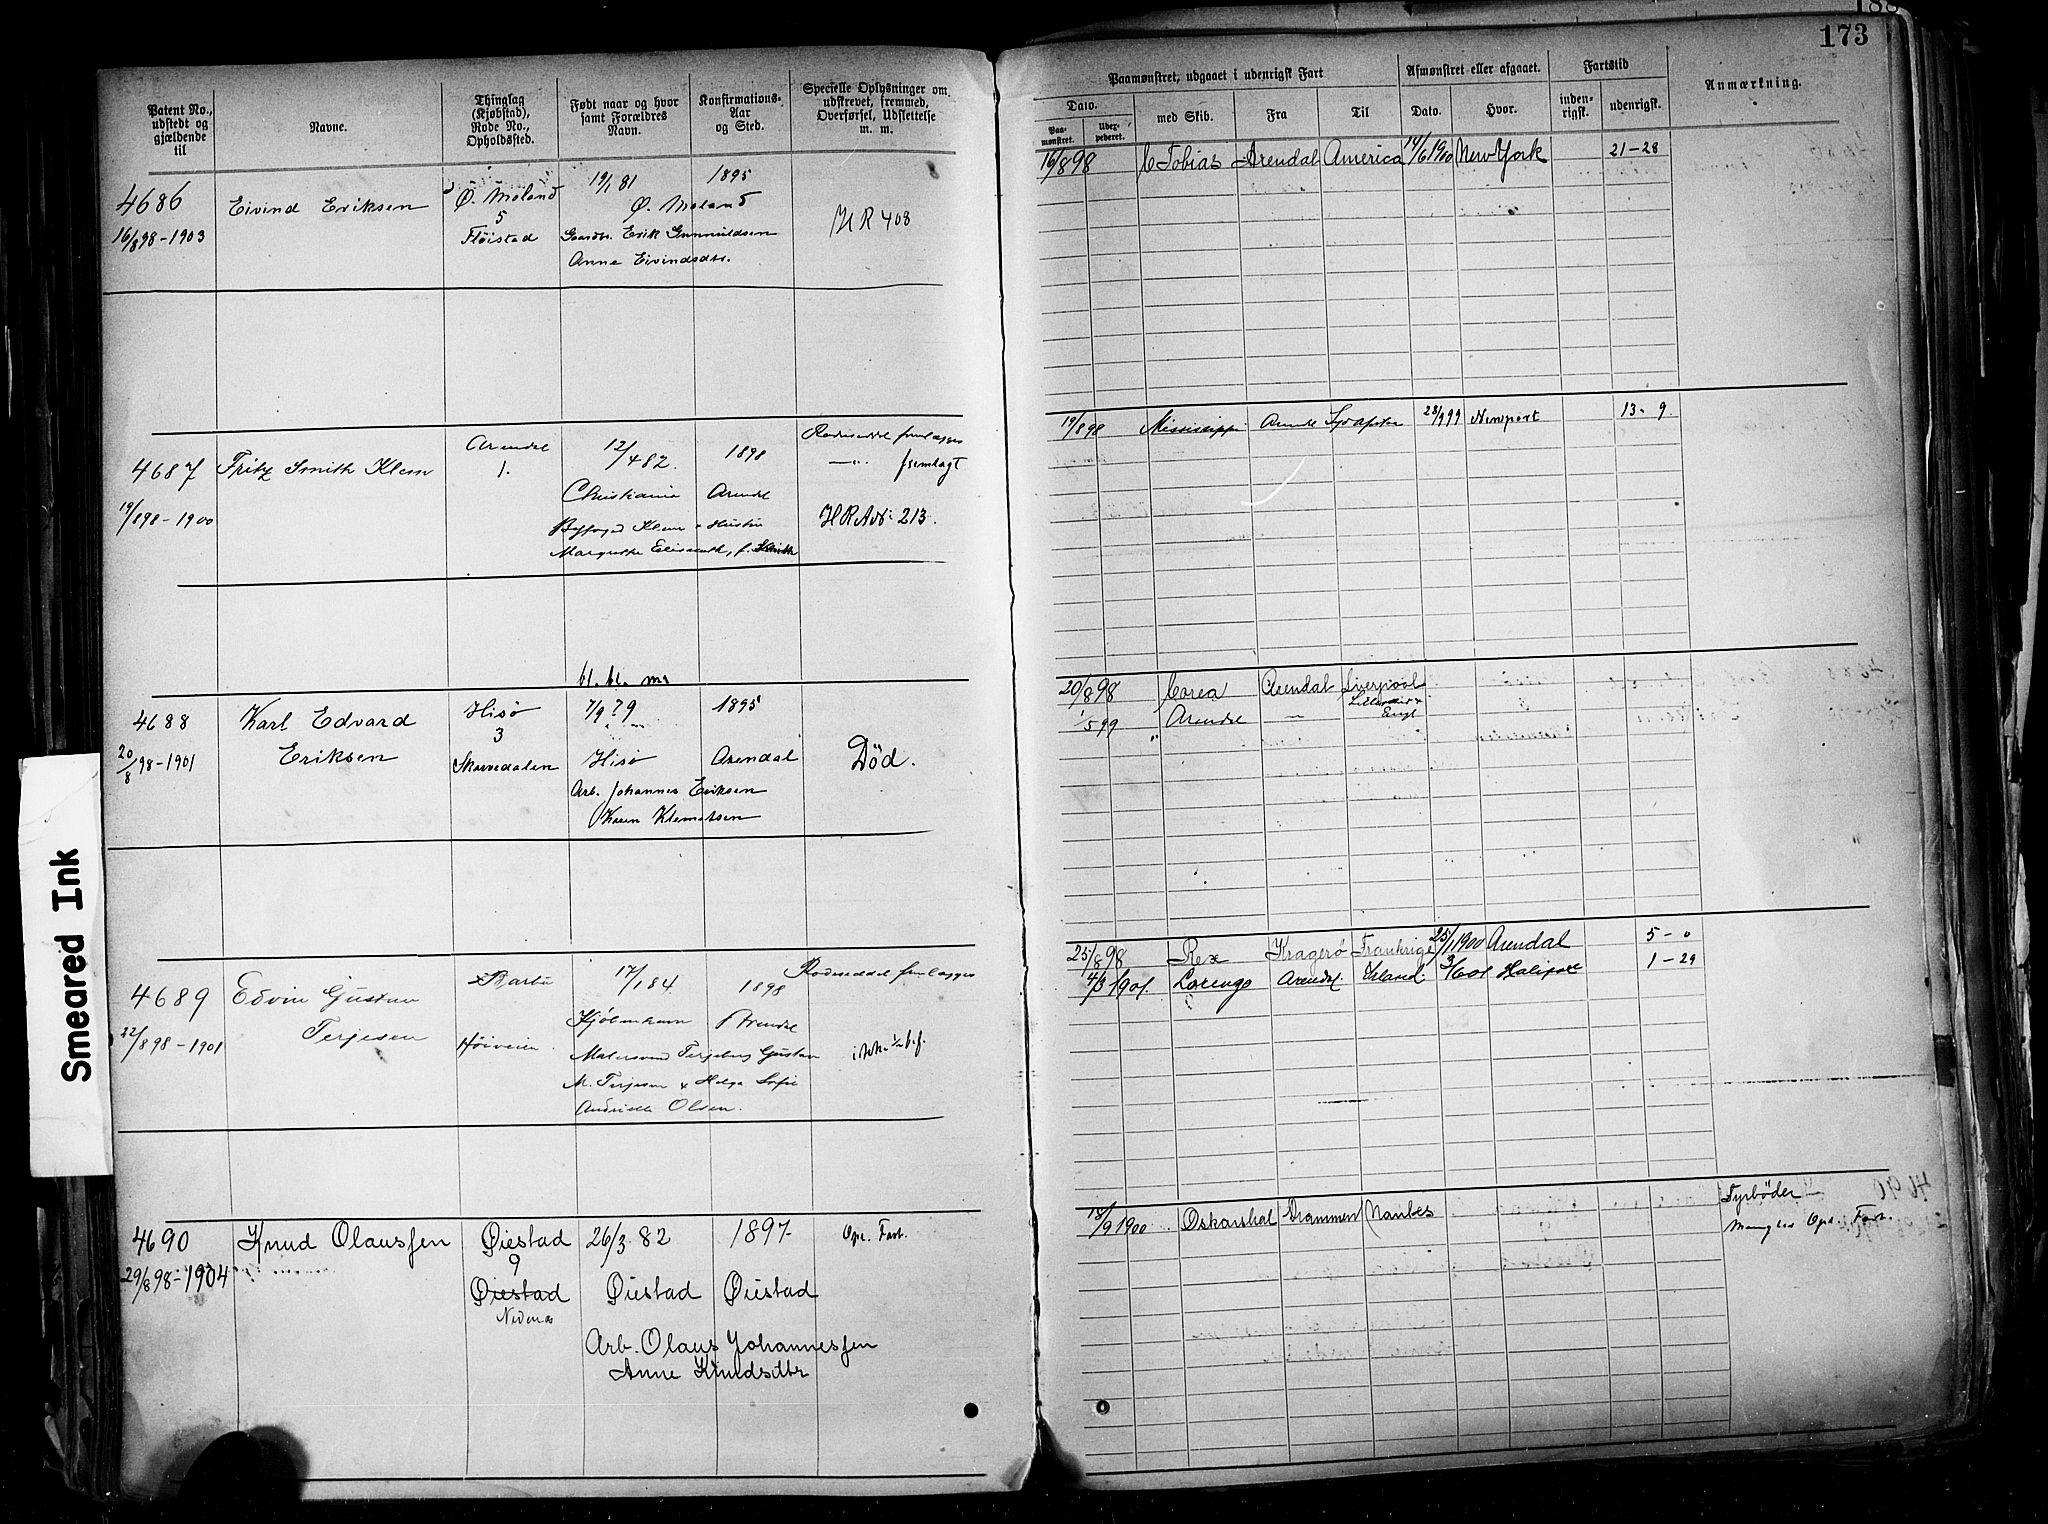 188
173
Patent No., udstedt og gjældende til
Navne.
Thinglag (Kjøbstad), Rode No., Opholdssted.
Født naar og hvor samt Forældres Navn.
Konfirmations-Aar og Sted.
Specielle Oplysninger om udskrevet, fremmed, Overførsel, Udslettelse m. m.
Paamønstret, udgaaet i udenrigsk Fart
Afmønstret eller afgaaet.
Fartstid
Anmærkning.
Dato.
med Skib.
Fra
Til
Dato.
Hvor.
inden-rigsk.
udenrigsk.
Paa-mønstret.
4686
16/8 98-1903
Eivind Eriksen
Ø. Moland
5
Fløistad
19/1 81
Ø. Moland
1895
Erik Gunnuldsen
Anne Eivindsdtr.
HR 408
16/8 98 Tobias Arendal America 14/6 1900 New York 21-28
4687
19/8 98-1900
Fritz Smith Klem
Arendal
1.
12/4 82.
Christiania
1898
Arendal
Klem
Rodeseddel fremlægges
fremlagt
HR Ad: 213.
19/8 98 Mississippi 28/9 99 Newport 13-9
bl. bl. ma
4688
20/8 98-1901
Karl Edvard
Eriksen
Hisø
3
7/9 79
Hisø
1895
Arendal
Arb. Johannes Eriksen
Karen Klemetsen
Død.
20/8 98 Corea Arendal Liverpool
1/5 99 Arendal
Engl
4689
22/8 98-1901
Edvin Gustav
Terjesen
Barbo
Høiveien
17/1 84
Kjøbenhavn
1898
Arendal
M. Terjesen & Helga Sofie
Olsen.
Rodeseddel fremlægges
25/8 98 Rex Kragerø Frankrige 25/1 1900 Arendal 5-0
4/3 1901. Lorengo Arendal Irland. Halifax 1-29
4690
29/8 98-1904
Knud Olaussen
Øiestad
9
Øiestad
Nedenæs
26/3 82
Øiestad
1897
Øiestad
Arb. Olaus Johannessen
Anne Knudsdtr
Opt. Fart.
18/9 1900 Oskarshal Drammen Nantes
Fyrbøder
Mangler Opt. Fart.
Smeared Ink